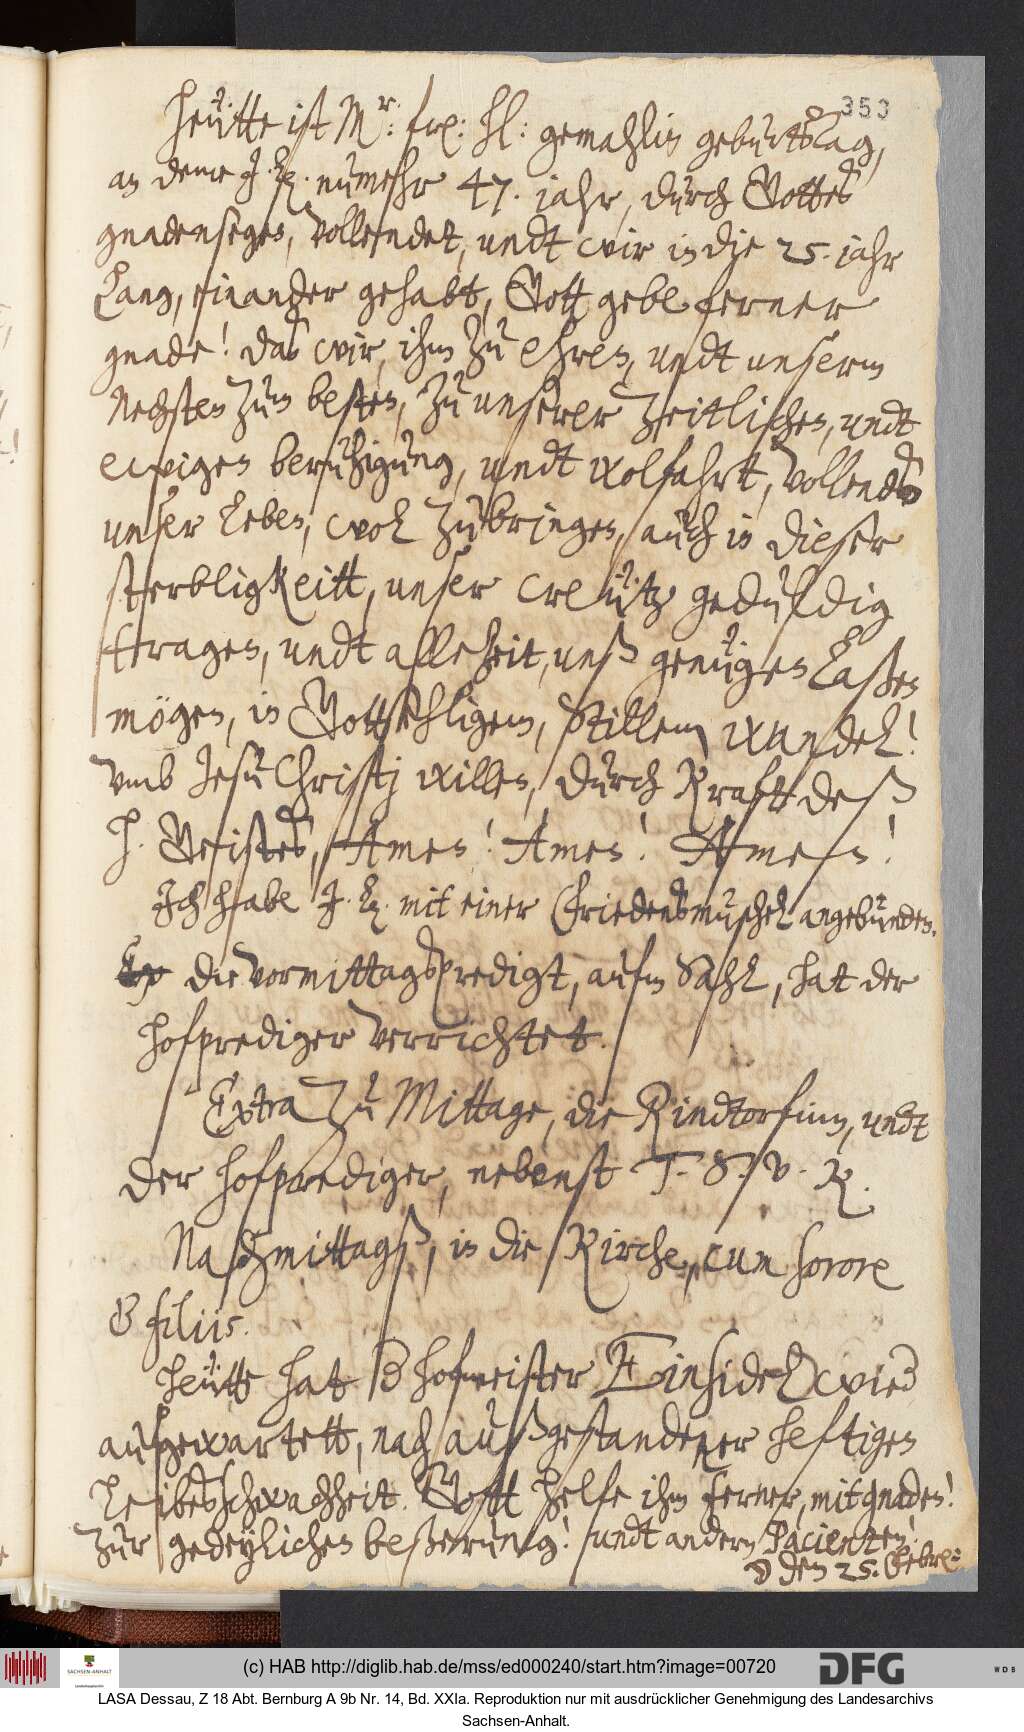 353
heütte ist Mr: frl: hl: gemahlin geburtsTag,
an deme I. L. numehr 47. iahr, durch Gottes
gnadensegen, vollendet, undt wir in die 25. iahr
Lang, einander gehabt, Gott gebe ferner
gnade! das wir, ihm zu ehren, undt unserm
Nechsten zum besten, zu unserer zeitlichen, undt
ewigen beruhigung, undt wolfahrt, vollends
unser Leben, wol zubringen, auch in dieser
sterbligkeitt, unser Creütz gedultdig
ttragen, undt allezeit, unß genügen Laßen
mögen, in Gottsehligem, stillem wandel!
umb Jesu Christj willen, durch Krafft deß
H. Geistes, Amen! Amen! Amen!
Ich habe I. L. mit einer Friedensmuschel angebunden.
die vormittagspredigt, aufm Sahl, hat der
hofprediger verrichtet.
Extra zu Mittage, die Rindtorfinn, undt
der hofprediger, nebenst T. S. v. R.
Nachmittagß, in die Kirche, cum sorore
& filiis.
heütte hat d hofmeister Einsidel wied
aufgewartett, nach außgestandener heftigen
Leibesschwachheit. Gott helfe ihm ferner, mit gnaden!
zur gedeylichen beßerung! undt andern Pacienten!
☽ den 25. Febr:
(c) HAB http://diglib.hab.de/mss/ed000240/start.htm?image=00720
SACHSEN-ANHALT
DFG
WDB
LASA Dessau, Z 18 Abt. Bernburg A 9b Nr. 14, Bd. XXIa. Reproduktion nur mit ausdrücklicher Genehmigung des Landesarchivs
Sachsen-Anhalt.